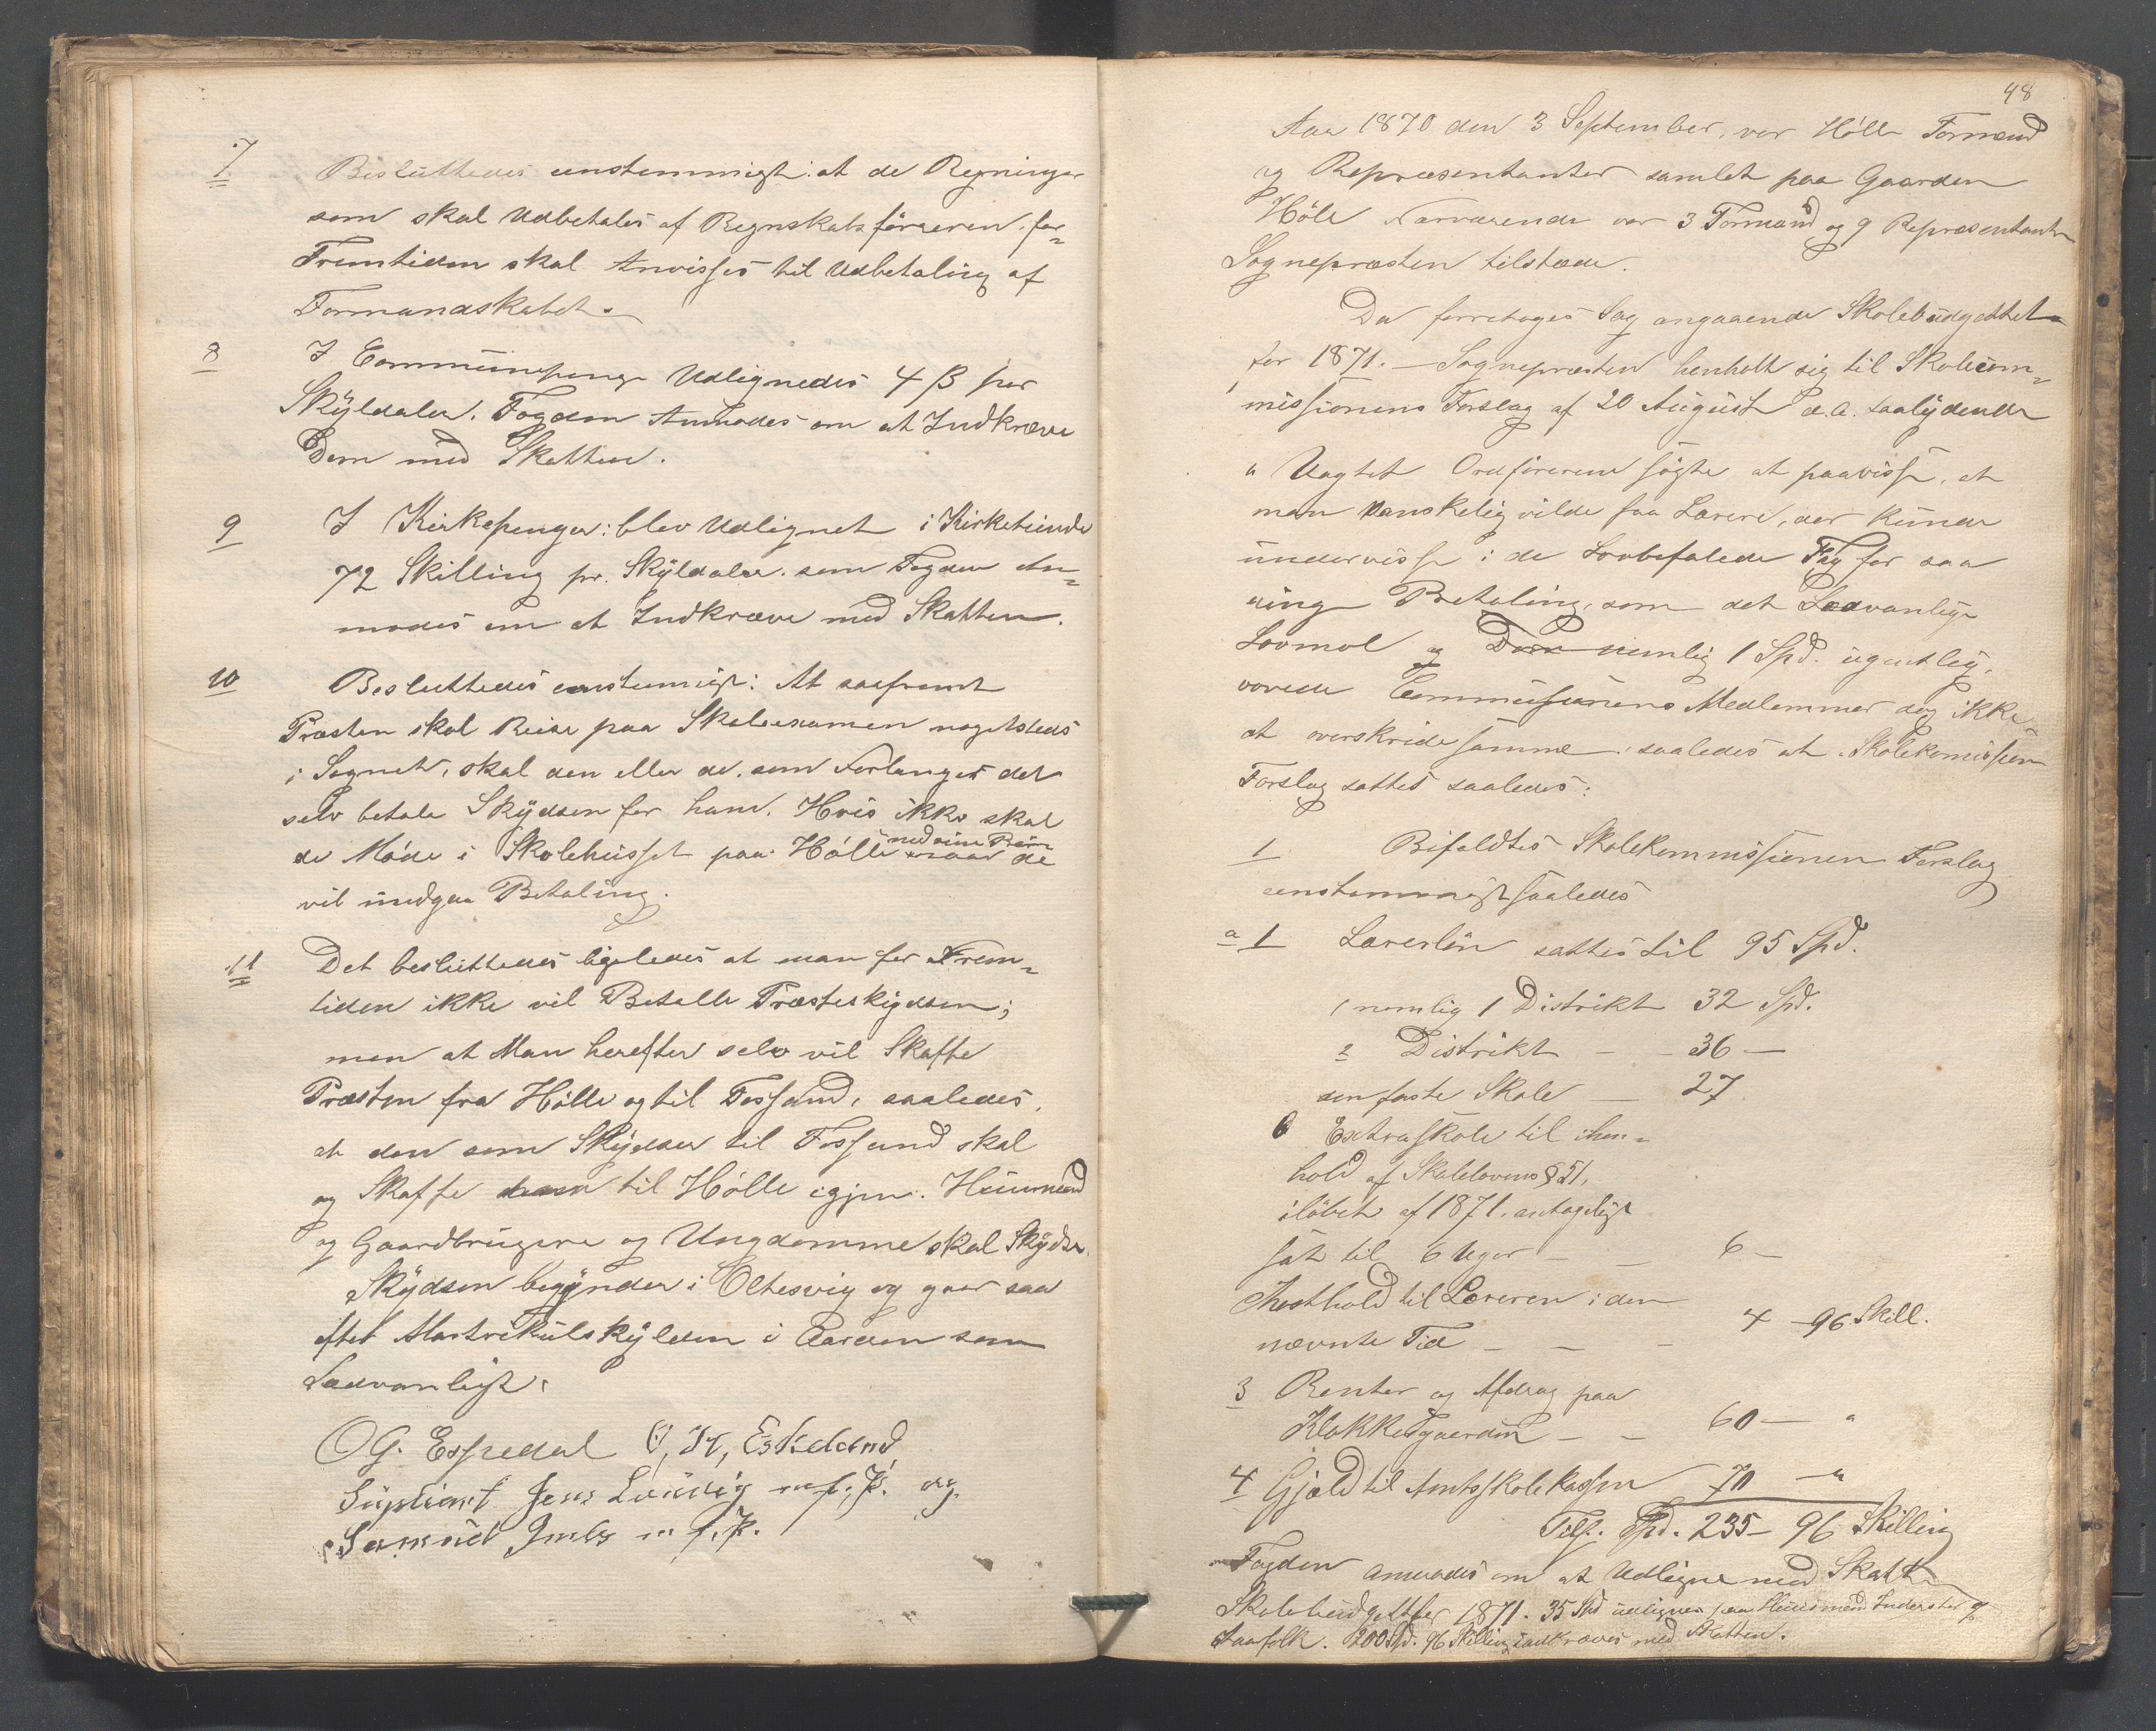 7 Besluttedes eenstemmigt: at de Regninger
som skal Udbetales af Regnskabsføreren for
Fremtiden skal Anvises til Udbetaling af
Formandskabet.
8 I Communepenge Udlignedes 4 ß pr
Skÿldaler. Fogden Anmodes om at Indkræve
Dem med Skatten.
9 I Kirkepenger: blev Udlignet i Kirketiende
72 Skilling pr. Skÿldaler. som Fogden An-
modes om at Indkræve med Skatten.
10 Besluttedes eenstemmigt: At saafremt
Præsten skal Reise paa Skoleexamen nogetsteds
i Sognet, skal den eller de, som Forlanger det
selv betale Skÿdsen for ham. Hvis ikke skal
de Møde i Skolehusset paa Hølle med sine Børn naar de
vil undgaa Betaling.
11 Det besluttedes ligeledes at man for Frem-
tiden ikke vil Betalle Præsteskydsen;
men at Man herefter selv vil Skaffe
Præsten fra Hølle og til Fossand, saaledes,
at den som Skÿdser til Fossand skal
og Skaffe ham til Hølle igjen. Huusmænd
og Gaardbrugere og Ungdomme skal Skÿdse.
Skÿdsen begÿnder i Oltesvig og gaar saa
efter Matrikulskÿlden i Raden som
Sædvanligt.
OG. Espedal O, H, Eskeland
Jens Lauvvig m. f. P. og
Samuel m. f. P.
48
Aar 1870 den 3 September, var Hölle Formænd
og Repræsentanter samlet paa Gaarden
Höle Nærværende var 3 Formænd og 9 Repræsentanter
Sognepræsten tilstæde.
Da forretoges Sag angaaende Skolebudgettet
for 1871. – Sognepræsten henholt sig til Skolecom-
missionens Forslag af 20 August d.A. saalydende
" Uagtet Ordføreren søgte at paavisse, at
man vanskelig vilde faa Lærere, der kunde
undervisse i de Lovbefalede Fag for saa
ring Betaling, som det Sædvanlige
Lovmol og nemlig 1 Spd. ugentlig,
vovede Commissionens Medlemmer dog ikke
at overskride samme, saaledes at Skolekomissjon
Forslag sattes saaledes:
1 Bifaldtes Skolekommissionen Forslag
eenstemmigt saaledes
a 1 Lærerløn sattes til 95 Spd.
nemlig 1 Distrikt 32 Spd.
2 Distrikt – – 36 –
den faste Skole – 27
b Extraskole til ihen-
hold af Skolelovens § 51,
iløbet af 1871. antageligt
sat til 6 Uger – – 6 –
Kosthold til Læreren i den
nævnte Tid – – – 4 – 96 Skill.
3 Renter og Afdrag paa
Klokkergaarden – – 60 – "
4 Gjæld til Amtsskolekassen 70 – "
Tils. Spd. 235 – 96 Skilling
Fogden anmodes om at Udligne med Skatten
Skolebudgettet for 1871. 35 Spd udlignes paa Huusmænd Inderster og
Laarfolk. 200 Spd. 96 Skilling indkræves med Skatten.